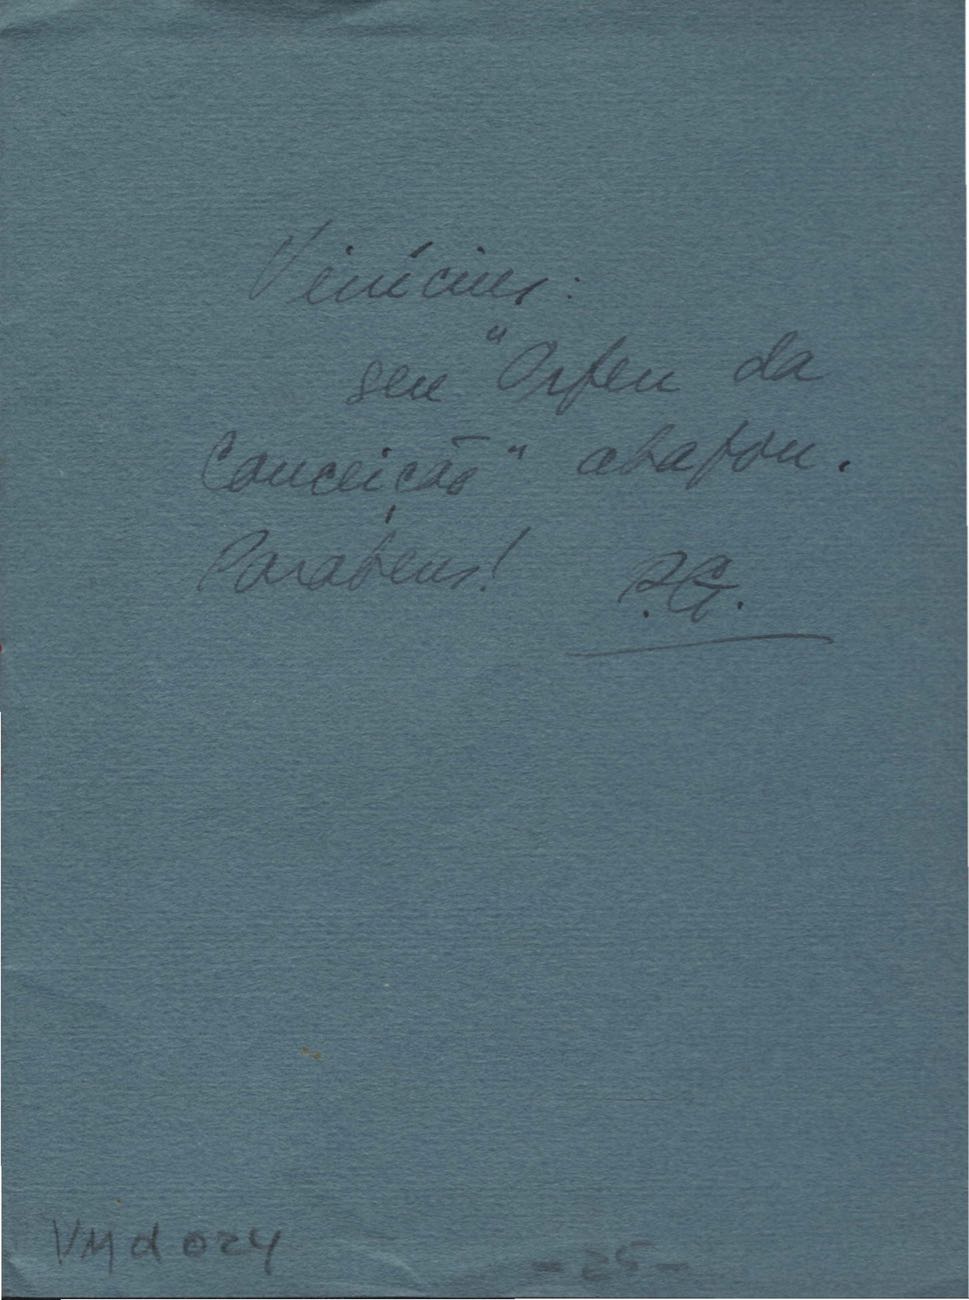 Vinícius:
seu "Orfeu da
Conceição" abafou.
Parabens!
P.G.
VMd 024
- 25 -